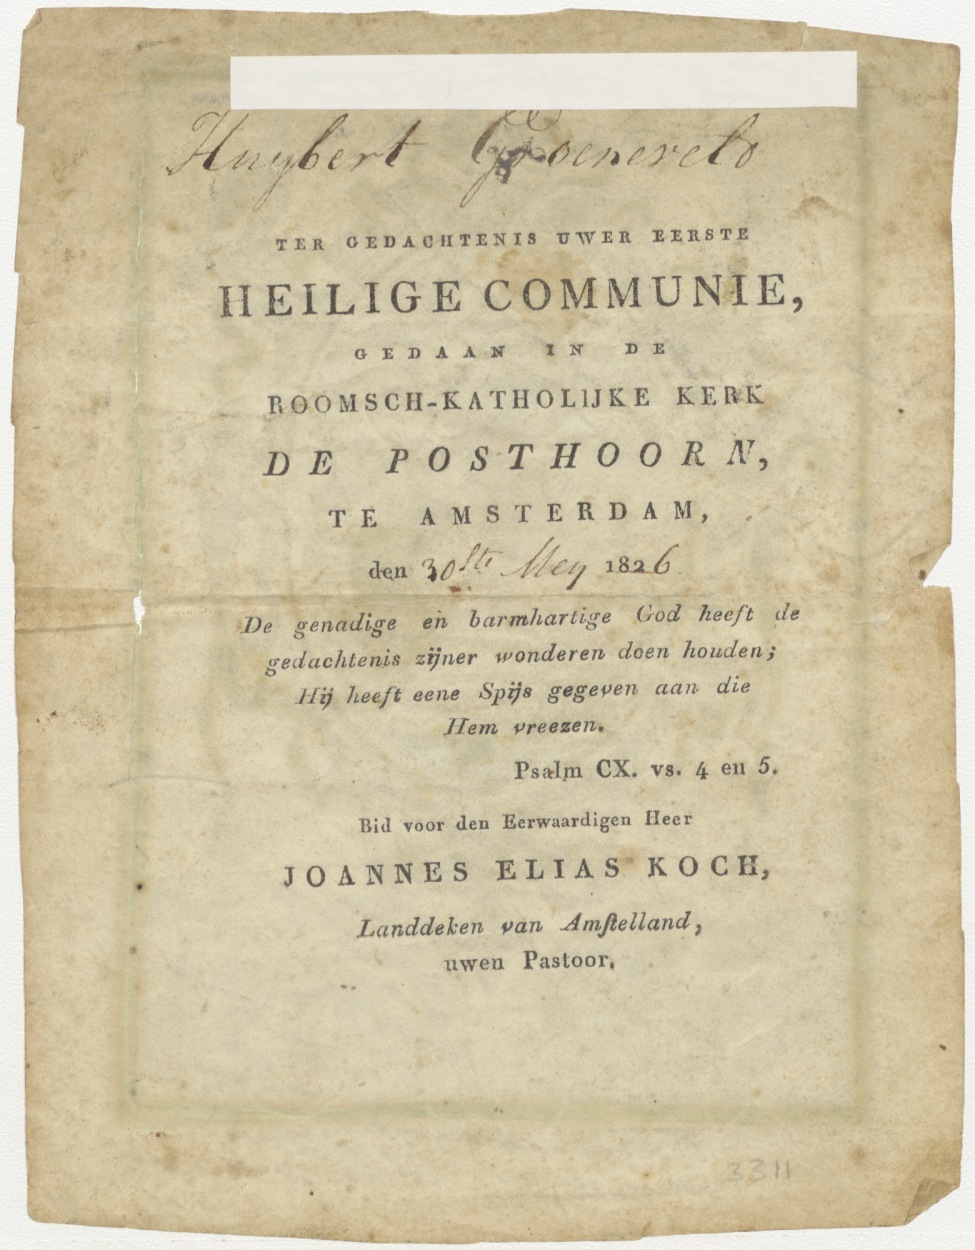 Huybert Groenevelo
TER GEDACHTENIS UWER EERSTE
HEILIGE COMMUNIE,
GEDAAN IN DE
ROOMSCH-KATHOLIJKE KERK
DE POSTHOORN,
TE AMSTERDAM,
den 30ste Mey 1826
De genadige en barmhartige God heeft de
gedachtenis zijner wonderen doen houden;
Hij heeft eene Spijs gegeven aan die
Hem vreezen.
Psalm CX. vs. 4 en 5.
Bid voor den Eerwaardigen Heer
JOANNES ELIAS KOCH,
Landdeken van Amſtelland,
uwen Pastoor.
3311